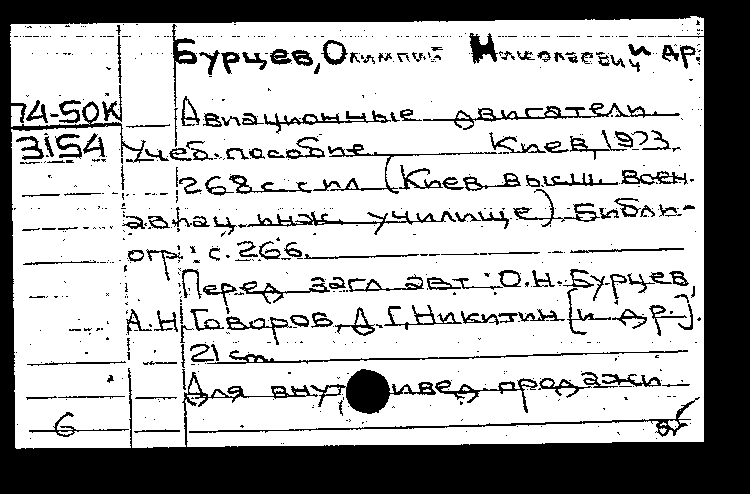 Бурцев, Олимпий Николаевич и др.
74-50К Авиационные двигатели.
3154 Учеб. пособие. Киев, 1973.
268 с. с ил. (Киев. высш. воен.
авиац. инж. училище) Библи-
огр.: с. 266.
Перед загл. авт.: О.Н. Бурцев,
А.Н. Говоров, Д.Г. Никитин [и др.].
21 см.
Для внут ивед. продажи
6